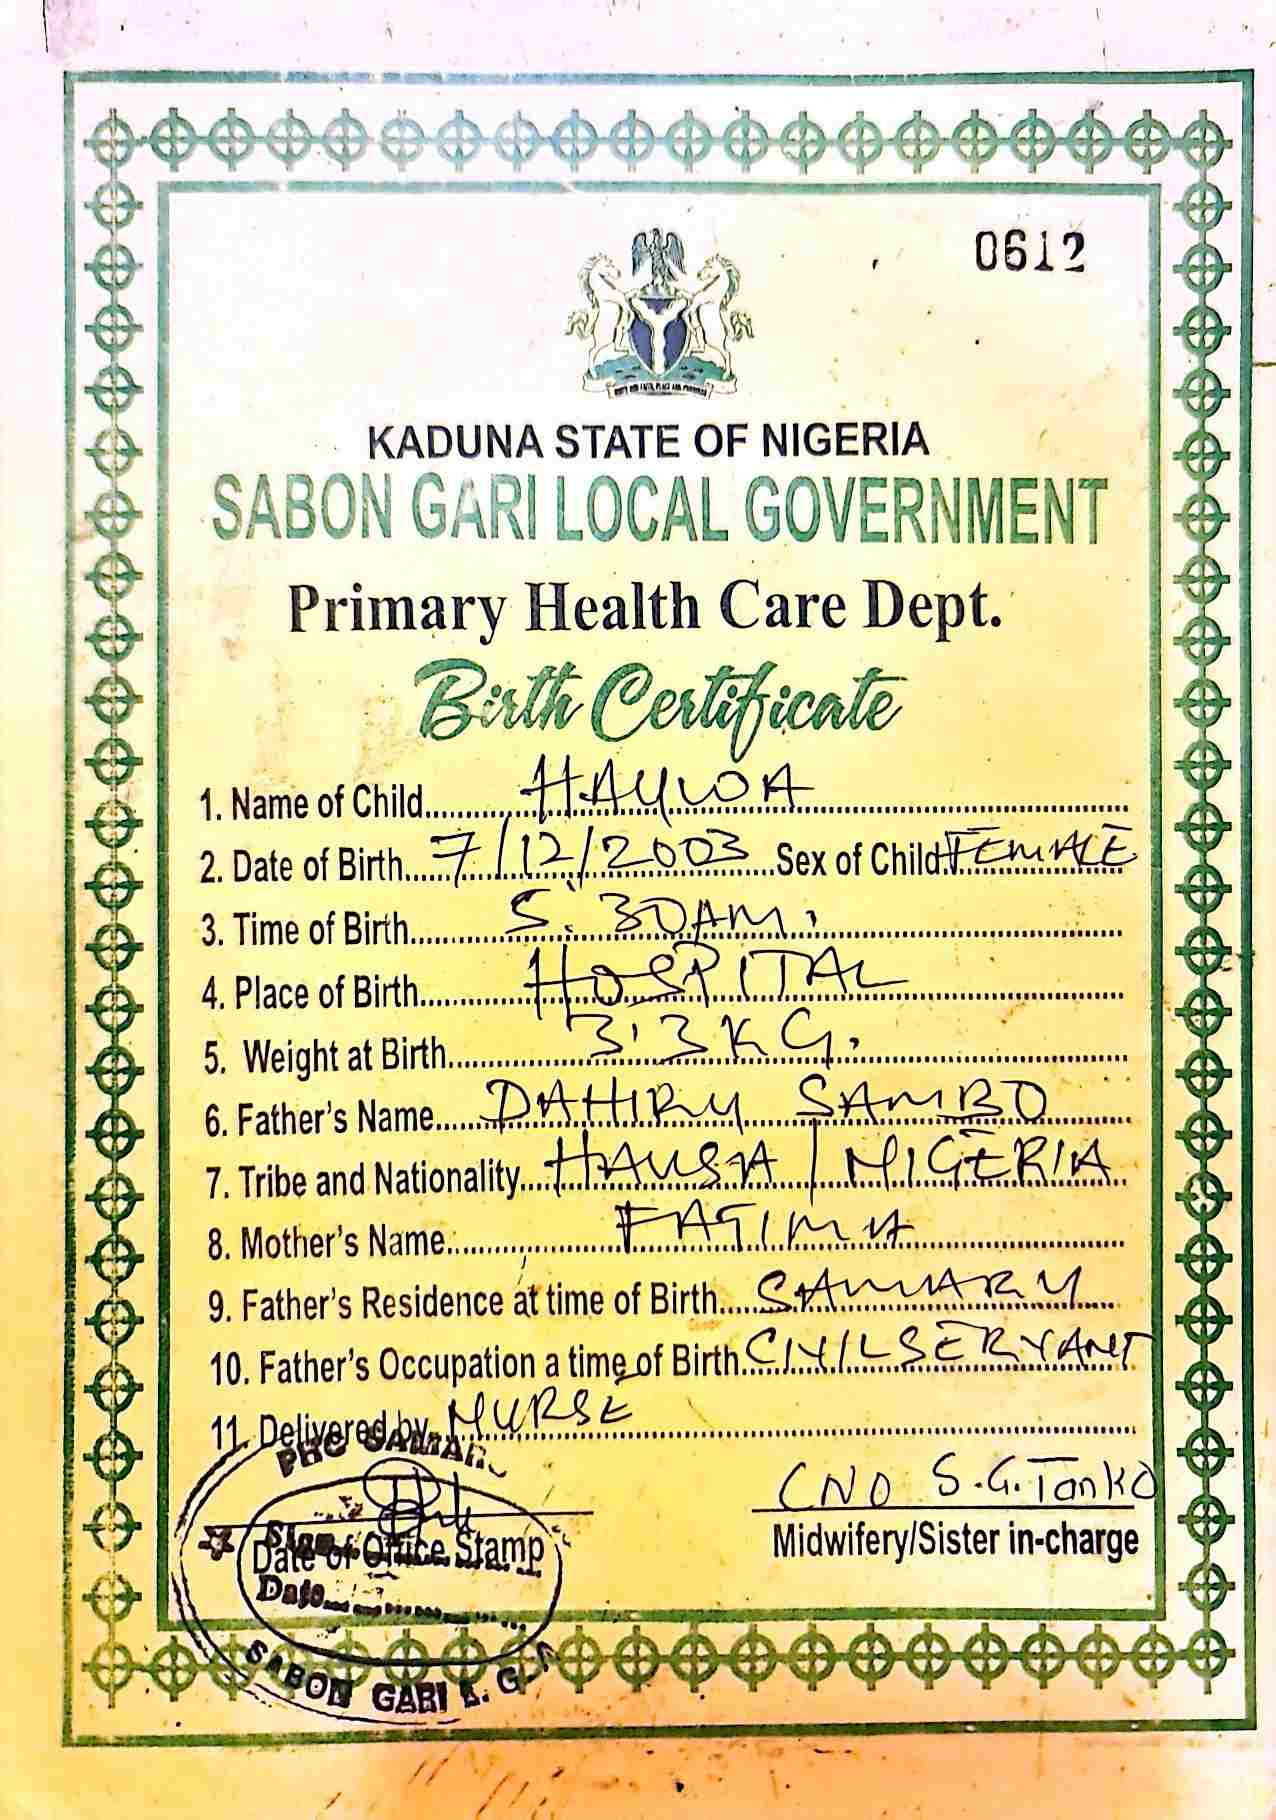 0612
KADUNA STATE OF NIGERIA
SABON GARI LOCAL GOVERNMENT
Primary Health Care Dept.
Birth Certificate
1. Name of Child HAUWA
2. Date of Birth 7/12/2003 Sex of Child FEMALE
3. Time of Birth 5:30AM.
4. Place of Birth HOSPITAL
5. Weight at Birth 3.3KG.
6. Father's Name DAHIRU SAMBO
7. Tribe and Nationality HAUSA / NIGERIA
8. Mother's Name FATIMA
9. Father's Residence at time of Birth SAMARU
10. Father's Occupation a time of Birth CIVIL SERVANT
11. Delivered by NURSE
PHC SAMARU
CNO S.G. Tanko
Sign
Date of Office Stamp
Midwifery/Sister in-charge
Date
SABON GARI L.G.A